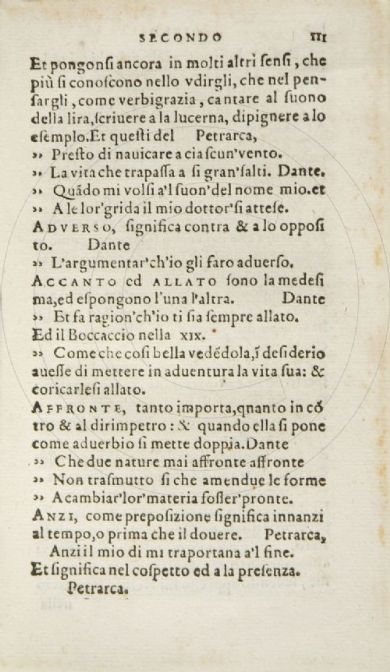 SECONDO 111
Et pongonsi ancora in molti altri sensi, che
più si conoscono nello vdirgli, che nel pen-
sargli, come verbigrazia, cantare al suono
della lira, scriuere a la lucerna, dipignere a lo
esemplo. Et questi del Petrarca,
„ Presto di nauicare a ciascun'vento.
„ La vita che trapassa a si gran'salti. Dante.
„ Quãdo mi volsi a'l suon'del nome mio. et
„ A le lor'grida il mio dottor'si attese.
ADVERSO, significa contra & a lo opposi
to. Dante
„ L'argumentar'ch'io gli faro aduerso.
ACCANTO ed ALLATO sono la medesi
ma, ed espongono l'una l'altra. Dante
„ Et fa ragion'ch'io ti sia sempre allato.
Ed il Boccaccio nella XIX.
„ Come che cosi bella vedédola, ĩ desiderio
auesse di mettere in aduentura la vita sua: &
coricarlesi allato.
AFFRONTE, tanto importa, qnanto in cõ
tro & al dirimpetro: & quando ella si pone
come aduerbio si mette doppia. Dante
„ Che due nature mai affronte affronte
„ Non trasmutto si che amendue le forme
„ A cambiar'lor'materia fosser'pronte.
ANZI, come preposizione significa innanzi
al tempo, o prima che il douere. Petrarca,
Anzi il mio di mi traportana a'l fine.
Et significa nel cospetto ed a la presenza.
Petrarca.